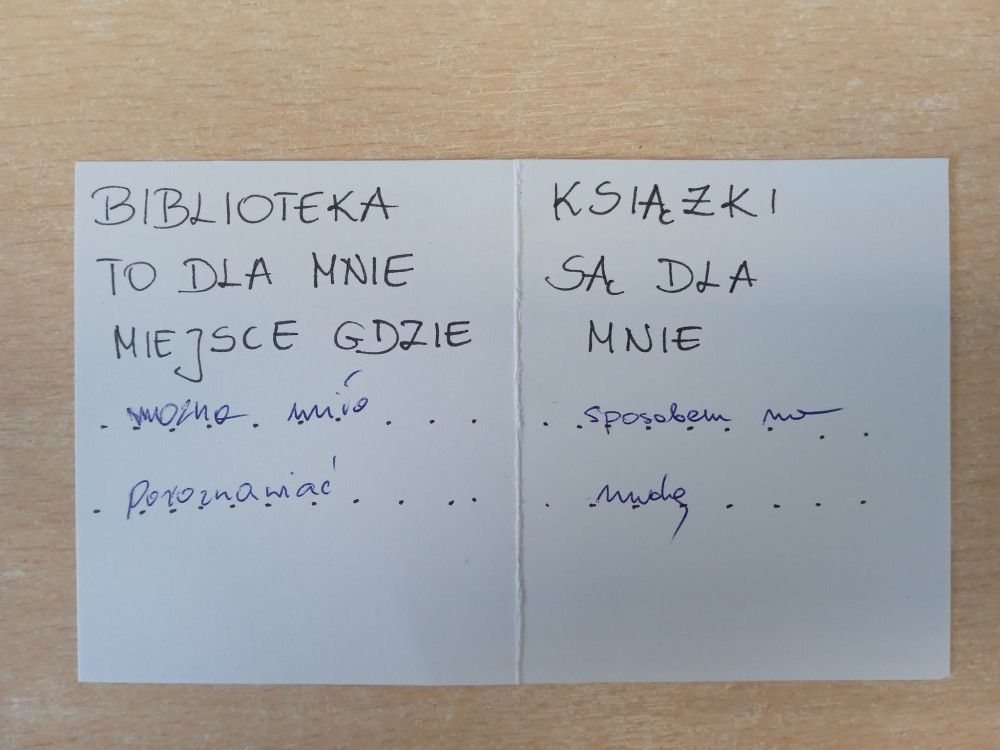 BIBLIOTEKA
TO DLA MNIE
MIEJSCE GDZIE
można miło
porozmawiać
KSIĄŻKI
SĄ DLA
MNIE
sposobem na
nudę